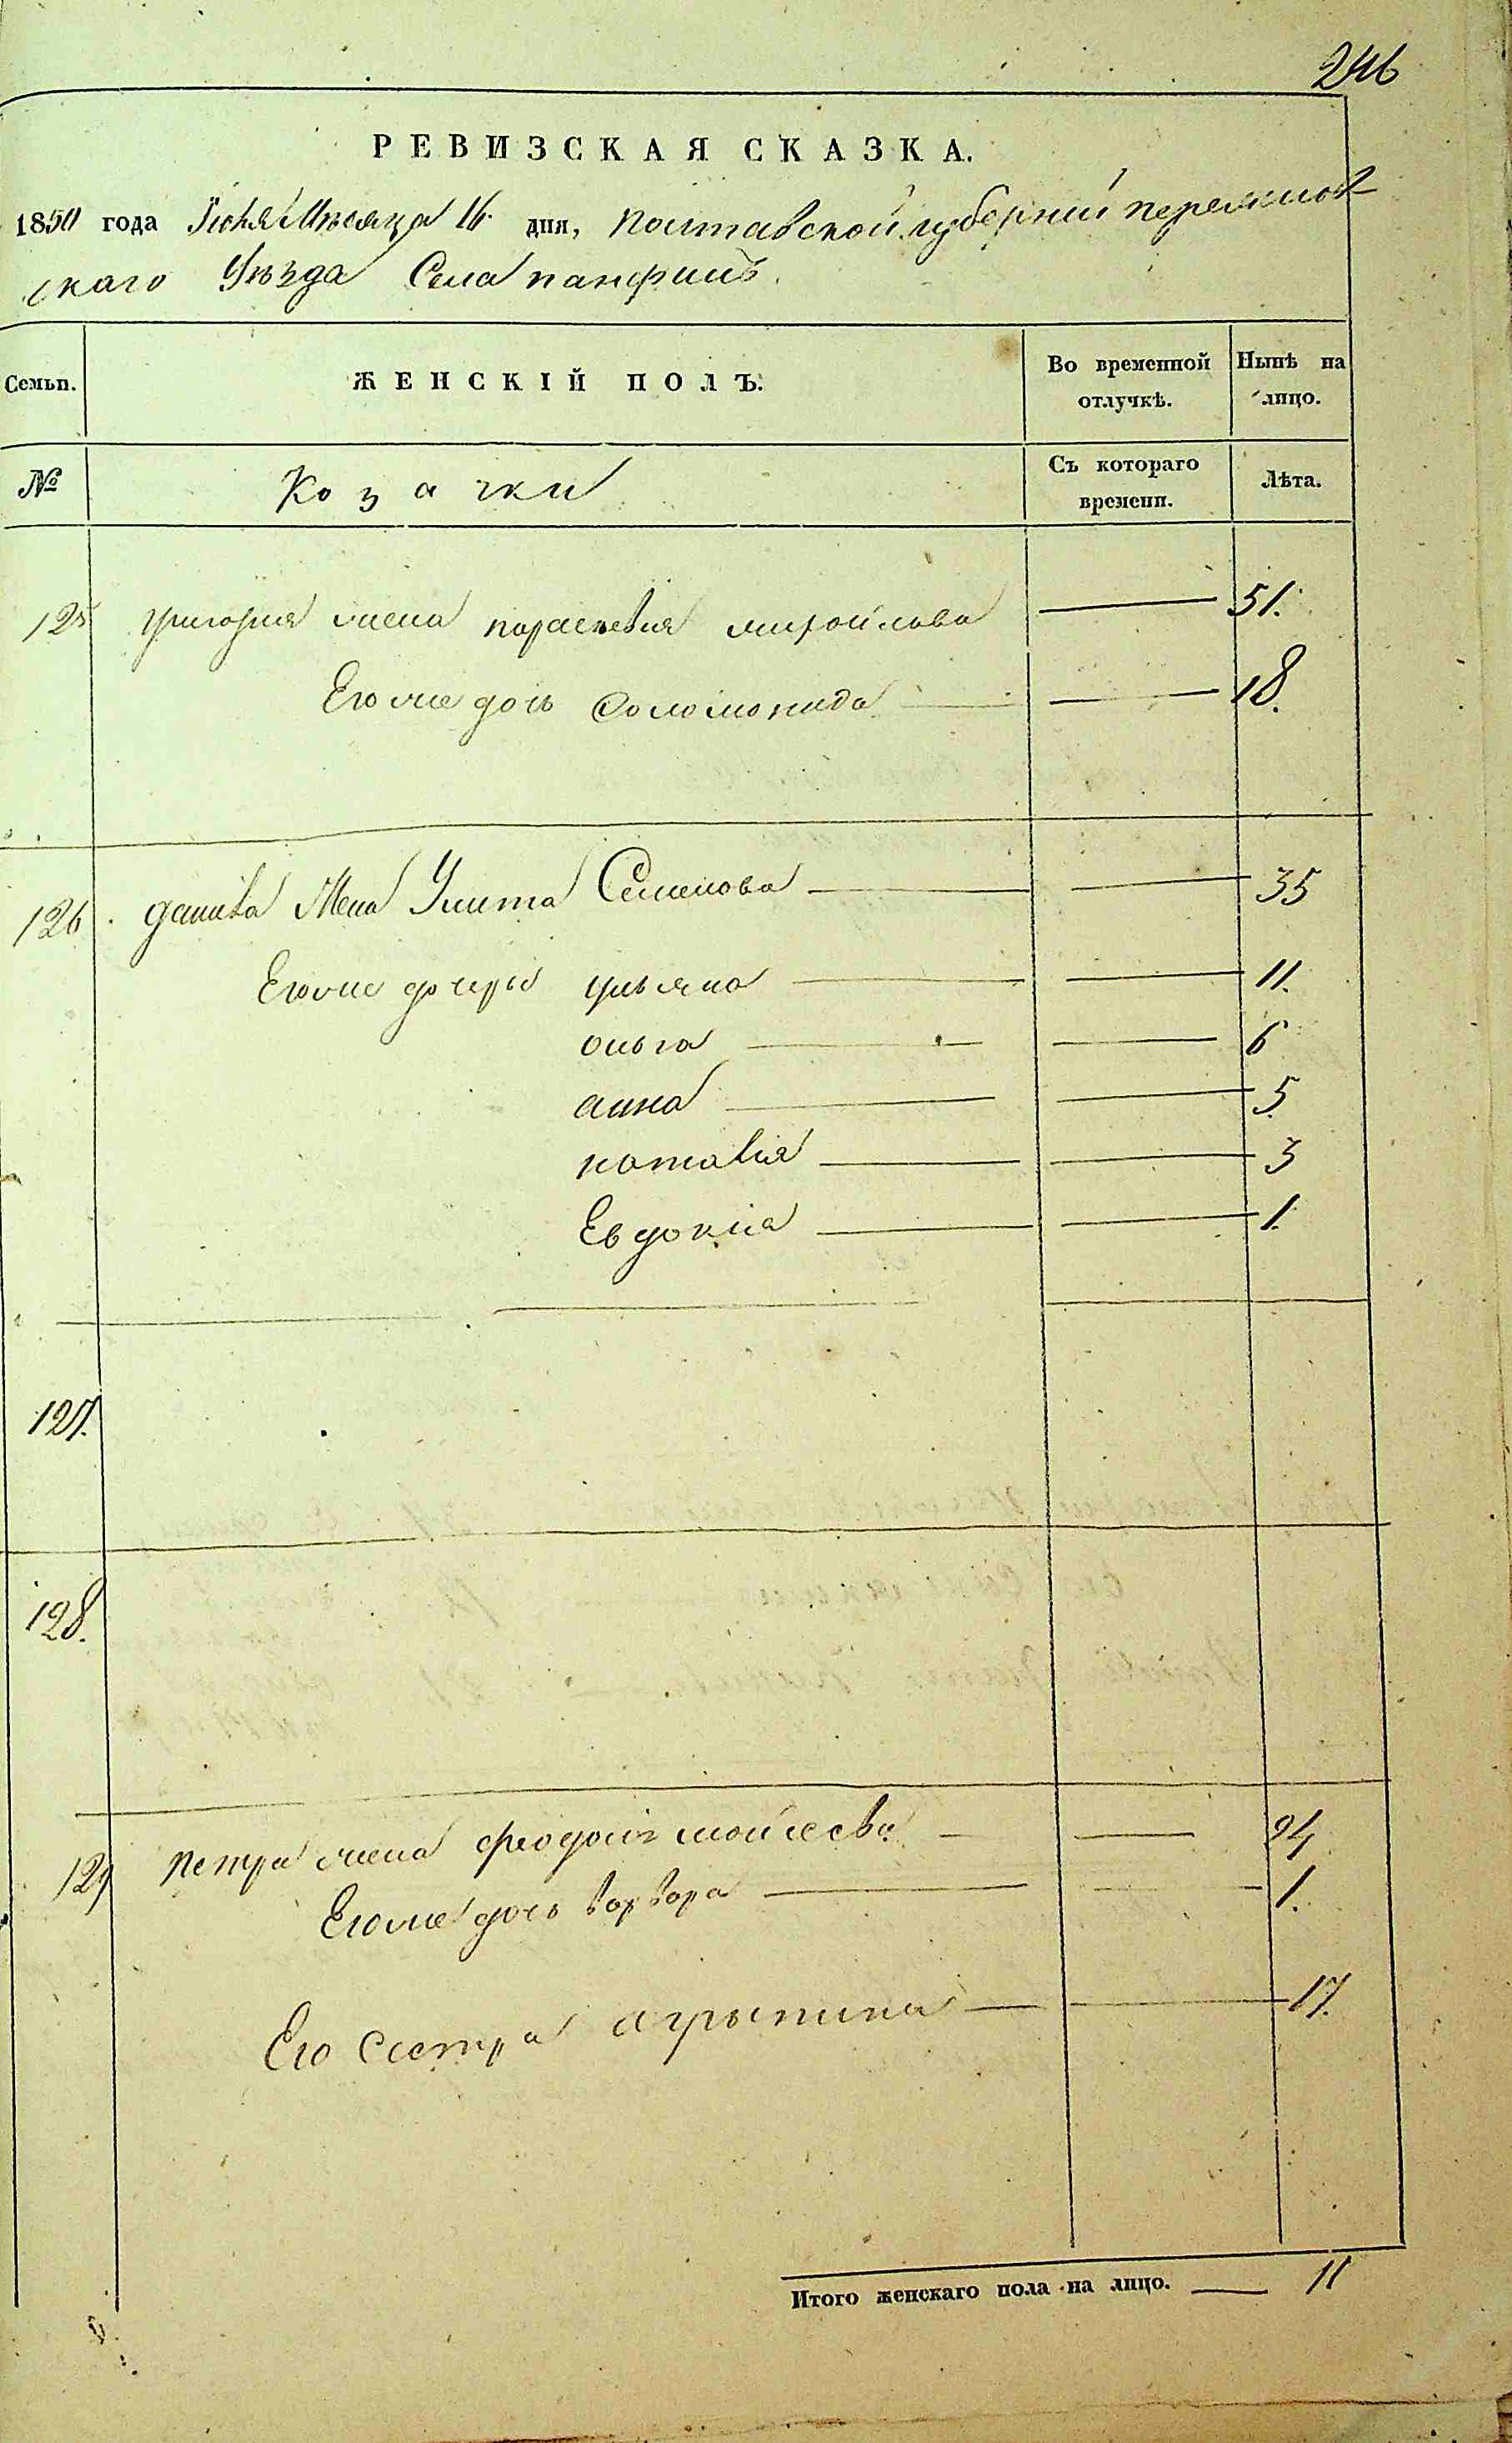 246
РЕВИЗСКАЯ СКАЗКА.
1850 года Июля Месяца 16 дня, полтавской губернии переяслов
скаго Уѣзда Села панфилъ
Семьи. ЖЕНСКІЙ ПОЛЪ. Во временной отлучкѣ. Нынѣ на лицо.
№ Козачки Съ котораго времени. Лѣта.
125 григория жена параскевия михайлова 51.
Его же дочь Соломонида 18.
126 данила Жена Улита Семенова 35
Его же дочери ульяна 11.
ольга 6
анна 5
наталия 3
Евдокиа 1.
127.
128.
129 петра жена феодосия мойсеева 24
Его же дочь варвара 1.
Его сестра агрипина 17.
Итого женскаго пола на лицо. 11